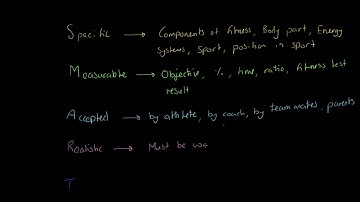 Specific → Components of fitness, Body part, Energy
systems, Sport, position in sport
Measurable → Objective, %, time, ratio, fitness test
result
Accepted → by athlete, by coach, by team mates, parents
Realistic → Must be w
T